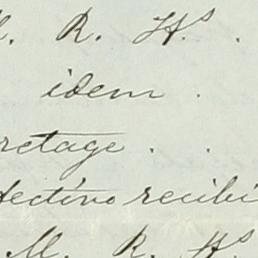 M. R. Hs.
idem .
retage . .
fectivo recibi
M. R. Hs